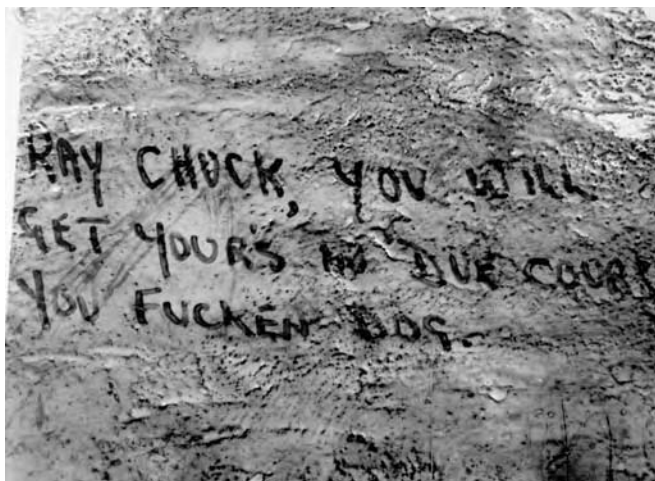 RAY CHUCK, YOU WILL
GET YOUR'S IN DUE COURS
YOU FUCKEN DOG.